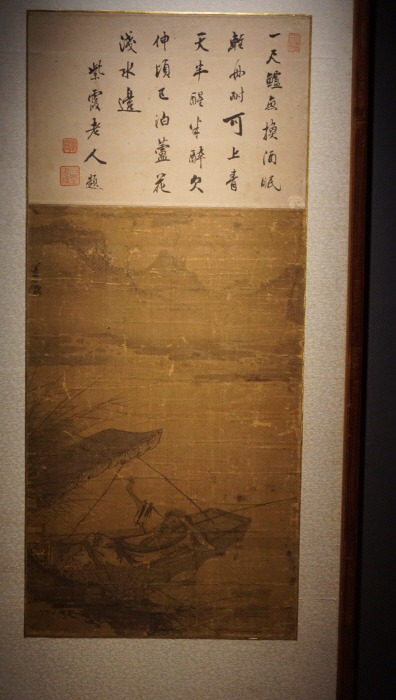 一尺鱸魚換酒眠
輕舟耐可上青
天半醒半醉欠
伸頃已泊蘆花
淺水邊
紫霞老人題